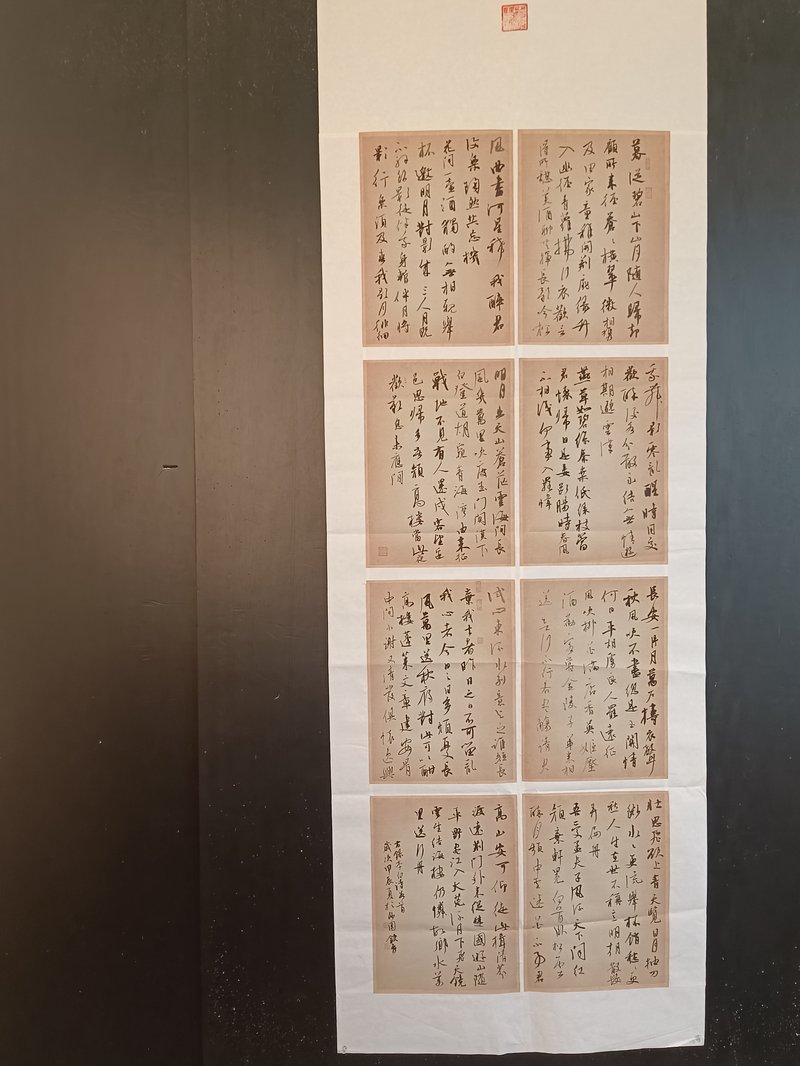 暮從碧山下山月隨人歸却
顧所來徑蒼々橫翠微相攜
及田家童稚開荊扉綠竹
入幽徑青蘿拂行衣歡言
得所憩美酒聊共揮長歌吟松
風曲盡河星稀我醉君
復樂陶然共忘機
花間一壺酒獨酌無相親舉
杯邀明月對影成三人月既
不解飲影徒隨我身暫伴月將
影行樂須及春我歌月徘徊
我舞影零亂醒時同交
歡醉後各分散永結無情遊
相期邈雲漢
燕草如碧絲秦桑低綠枝當
君懷歸日是妾斷腸時春風
不相識何事入羅幃
明月出天山蒼茫雲海間長
風幾萬里吹度玉門關漢下
白登道胡窺青海灣由來征
戰地不見有人還戍客望邊
色思歸多苦顏高樓當此夜
歎息未應閒
長安一片月萬戶擣衣聲
秋風吹不盡總是玉關情
何日平胡虜良人罷遠征
風吹柳花滿店香吳姬壓
酒喚客嘗金陵子弟來相
送欲行不行各盡觴請君
試問東流水別意與之誰短長
棄我去者昨日之日不可留亂
我心者今日之日多煩憂長
風萬里送秋雁對此可以酣
高樓蓬萊文章建安骨
中間小謝又清發俱懷逸興
壯思飛欲上青天覽日月抽刀
斷水々更流舉杯銷愁々更
愁人生在世不稱意明朝散髮
弄扁舟
吾愛孟夫子風流天下聞紅
顏棄軒冕白首臥松雲
醉月頻中聖迷花不事君
高山安可仰徒此揖清芬
渡遠荊門外來從楚國遊山隨
平野盡江入大荒流月下飛天鏡
雲生結海樓仍憐故鄉水萬
里送行舟
右錄李白詩數首
歲次甲辰夏於